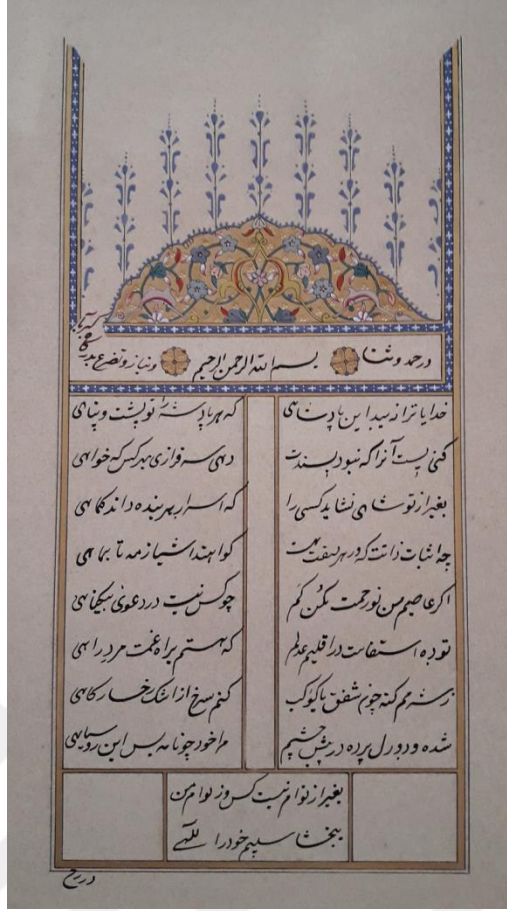 در حمد و ثنا بسم الله الرحمن الرحیم و نیاز و تضرع بدرگاه کبریا
خدایا ترا زیبد این پادشاهی که هر پادشه را تو پشت و پناهی
کنی پست آنرا که نبود پسندت دهی سرفرازی بهر کس که خواهی
بغیر از تو شاهی نشاید کسی را که اسرار هر بنده داند کماهی
اثبات ذاتت که در هر صفت هست گواهند اشیا ز مه تا بماهی
اگر عاصیم من تو رحمت مکن کم چو کس نیست در دعوی بیگناهی
تو ده استقامت در اقلیم عدلم که هستم براه غمت مرد راهی
ز شرم گنه چون شفق با کواکب کنم سرخ از اشک رخسار کاهی
شده دود دل پرده در پیش چشمم مرا خود چو نامه بس این روسیاهی
بغیر از توام نیست کس
ببخشا سلیم خود را الهی
در رخ